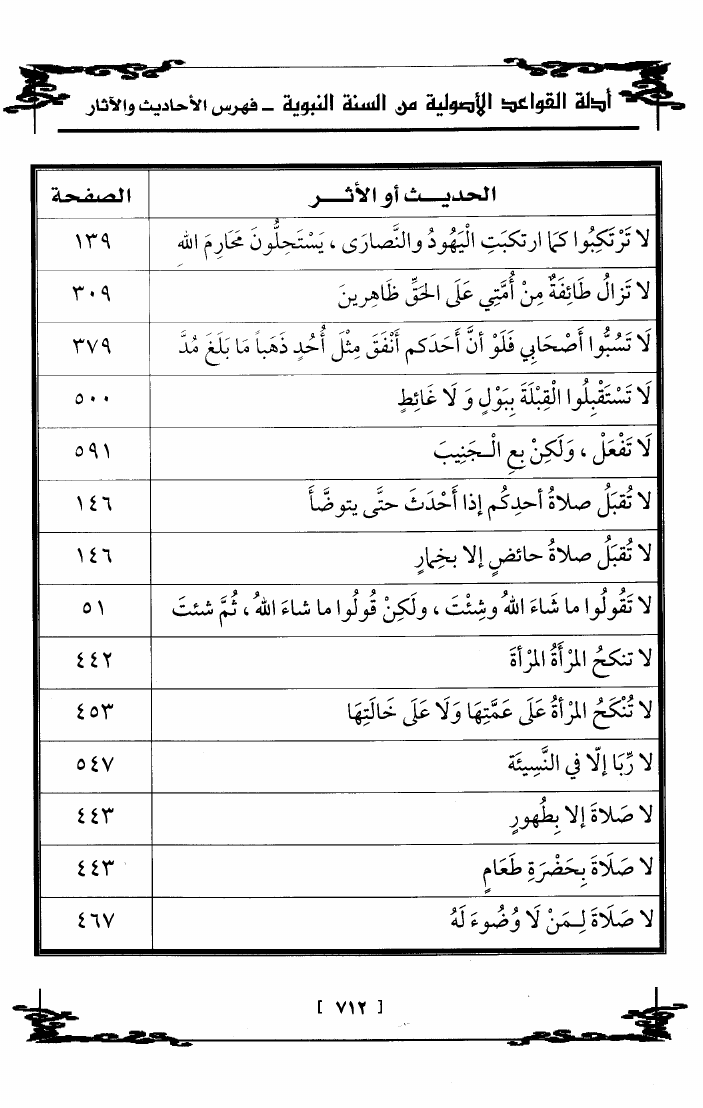 أدلة القواعد الأصولية من السنة النبوية ـ فهرس الأحاديث والآثار
الحديـــث أو الأثـــر الصفحة
لا تَرْتَكِبُوا كَمَا ارتكبَتِ الْيَهُودُ والنَّصارَى ، يَسْتَحِلُّونَ مَحَارِمَ اللهِ ١٣٩
لا تَزالُ طَائِفَةٌ مِنْ أُمَّتِي عَلَى الحَقِّ ظَاهِرِينَ ٣٠٩
لَا تَسُبُّوا أَصْحَابِي فَلَوْ أنَّ أَحَدَكم أَنْفَقَ مِثْلَ أُحُدٍ ذَهَباً مَا بَلَغَ مُدَّ ٣٧٩
لَا تَسْتَقْبِلُوا الْقِبْلَةَ بِبَوْلٍ وَ لَا غَائِطٍ ٥٠٠
لَا تَفْعَلْ ، وَلَكِنْ بِعِ الْـجَنِيبَ ٥٩١
لا تُقبَلُ صلاةُ أحدِكُم إذا أَحْدَثَ حتَّى يتوضَّأَ ١٤٦
لا تُقبَلُ صلاةُ حائضٍ إلا بخِمارٍ ١٤٦
لا تَقُولُوا ما شَاءَ اللهُ وشِئْتَ ، ولَكِنْ قُولُوا ما شاءَ اللهُ ، ثُمَّ شئتَ ٥١
لا تنكحُ المرْأَةُ المرْأةَ ٤٤٢
لا تُنْكَحُ المرْأةُ عَلَى عَمَّتِهَا وَلَا عَلَى خَالَتِهَا ٤٥٣
لا رِّبَا إلّا في النَّسِيئَة ٥٤٧
لا صَلاةَ إلا بِطُهورٍ ٤٤٣
لا صَلَاةَ بِحَضْرَةِ طَعَامٍ ٤٤٣
لا صَلَاةَ لِـمَنْ لَا وُضُوءَ لَهُ ٤٦٧
[ ٧١٢ ]